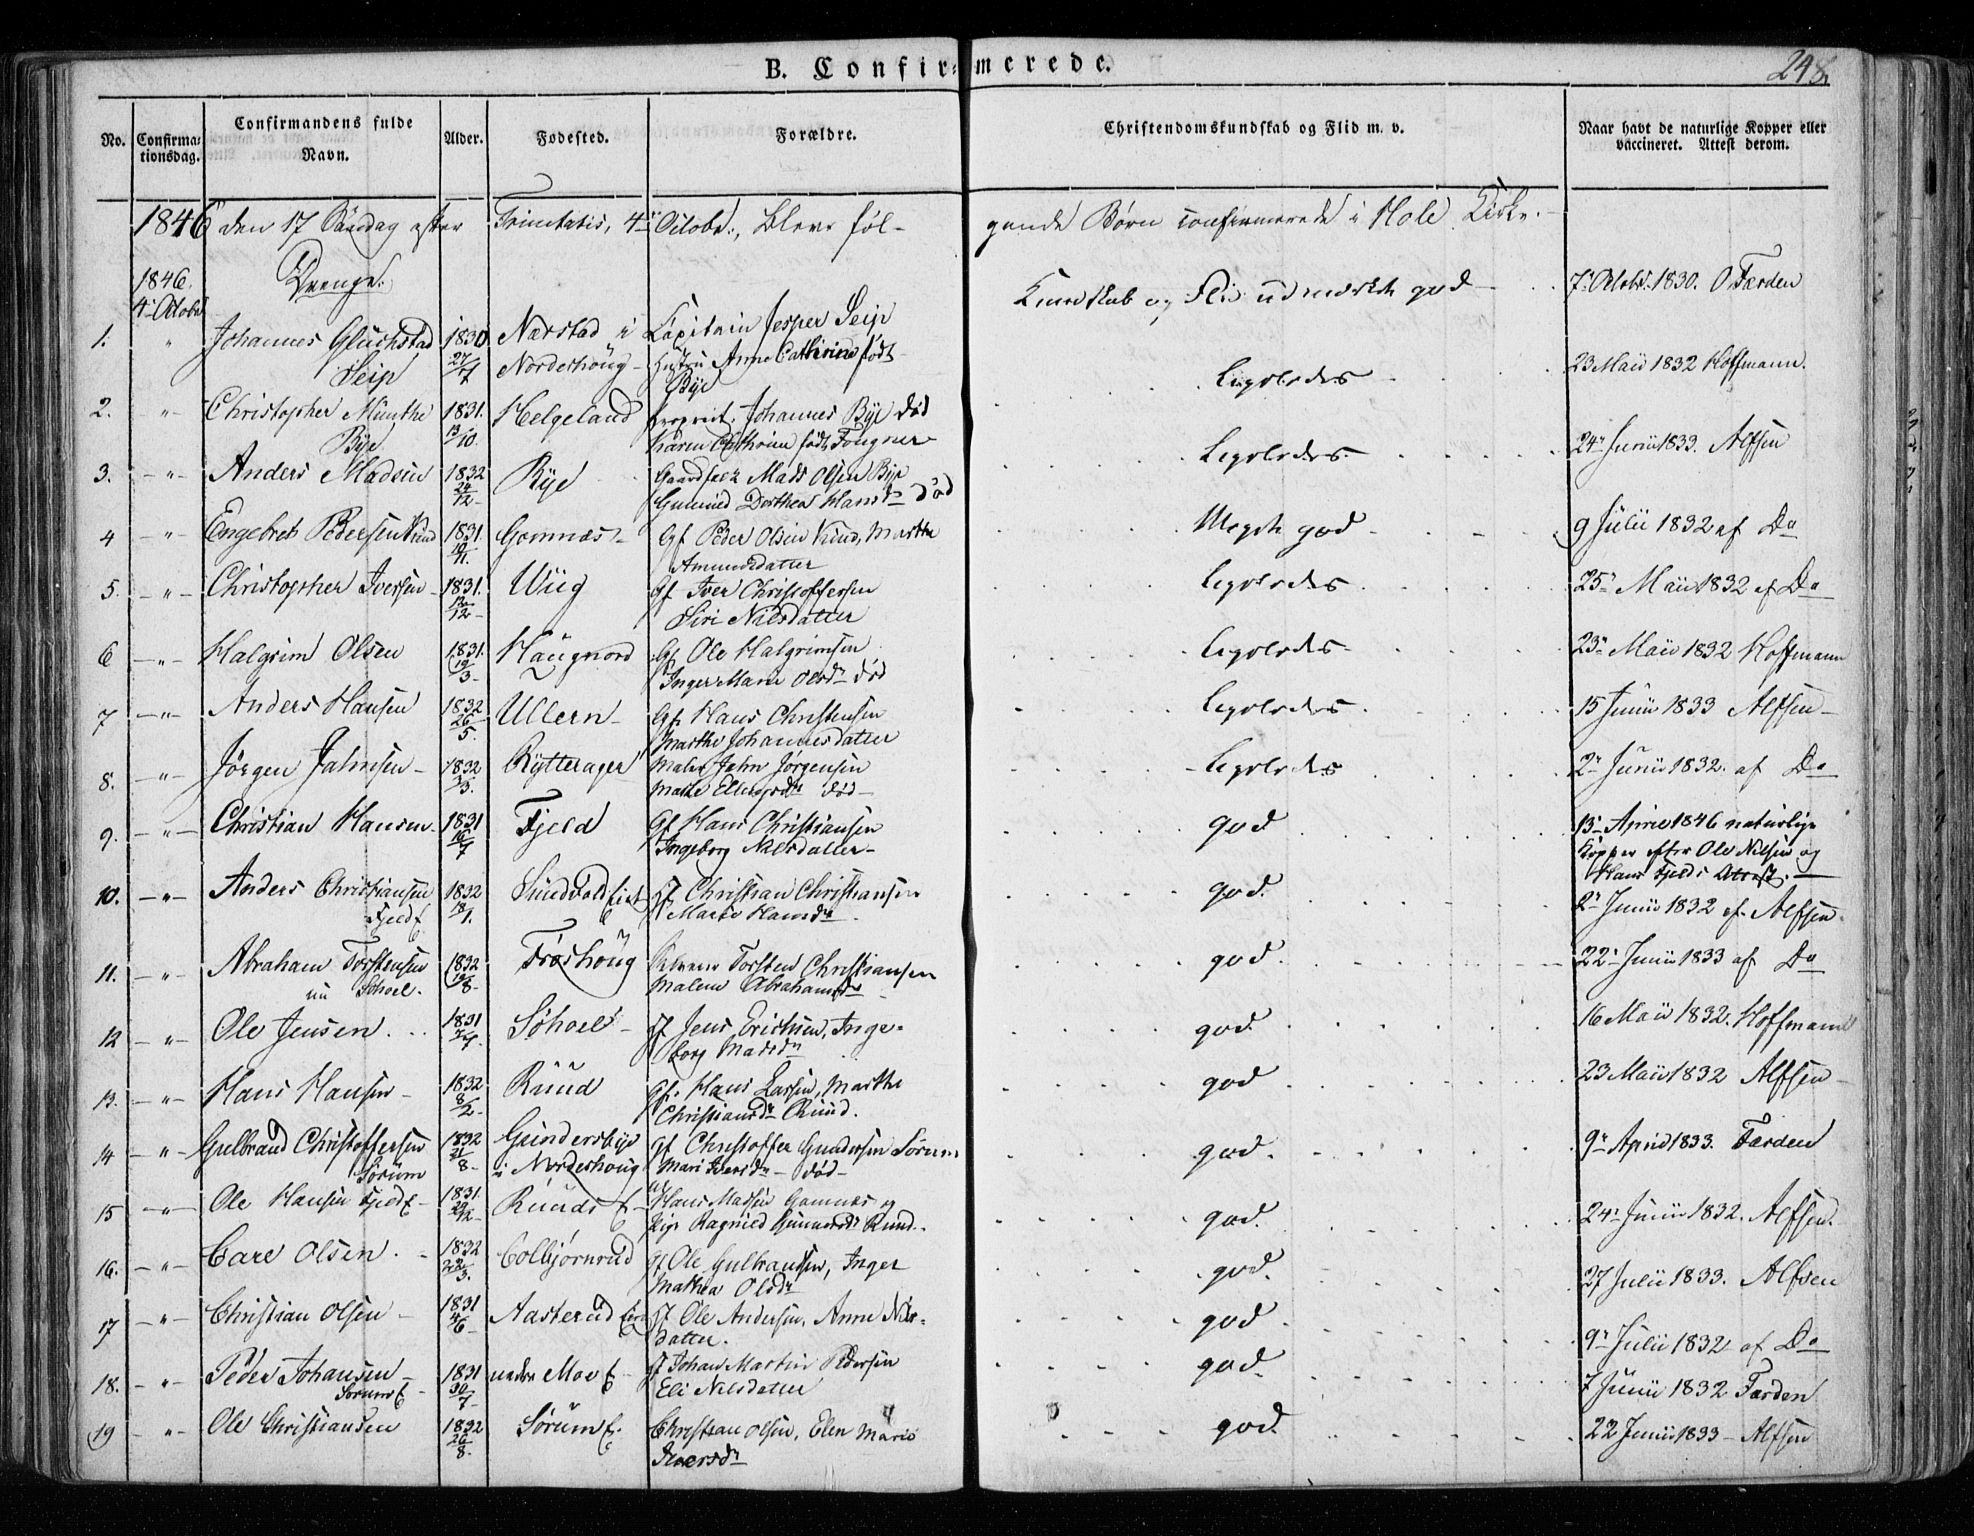 B. Confirmerede.
248.
No. Confirmationsdag. Confirmandens fulde Navn. Alder. Fødested. Forældre. Christendomskundskab og Flid m. v. Naar havt de naturlige Kopper eller vaccineret. Attest derom.
1846 den 17 Søndag efter Trinitatis, 4de Octobr., bleve følgende Børn confirmerede i Hole Kirke.
1846. 4de Octobr
Drenge.
1. " Johannes Gluckstad Seip 1830 27/7 Nærstad i Norderhoug Capitain Jesper Seip Hustru Anne Cathrine født Bye Kundskab og Flid udmærket god 7de Octobr. 1830. O Færden
2. " Christopher Münthe Bye 1831. 13/10. Helgeland Propriet. Johannes Bye død Karen Cathrine født Fougner Ligeledes 23 Maii 1832 Hoffmann.
3. " Anders Madsen 1832 24/12 Bye Mads Olsen Bye Gunnild Dorthea Hansdr død Ligeledes 24de Junii 1833. Alfsen
4 " Engebret Pedersen 1831. 10/11. Gomnæs Gf Peder Olsen Marthe Amundsdatter Meget god 9 Julii 1832 af Do
5. " Christopher Iversen 1831. 12/12 Wiig Gf Iver Christoffersen Siri Nilsdatter Ligeledes 25de Maii 1832 af Do
6 " Halgrim Olsen 1831. 19/3 Haugnord Gf Ole Halgrimsen Inger Marie Olsdr død Ligeledes 23de Maii 1832 Hoffmann
7 " Anders Hansen 1832 26/5. Ullern Gf Hans Christensen Marthe Johannesdatter Ligeledes 15 Junii 1833 Alfsen
8. " Jørgen Jahnsen 1832 3/3. Rytterager Maler Jahn Jørgensen død Ligeledes 2de Junii 1832. af Do
9. " Christian Hansen 1831 16/7 Fjeld Gf Hans Christiansen Ingeborg Nilsdatter god 13de April 1846 naturlige Kopper efter Ole Nilsen og Hans Fjelds Attest.
10. " Anders Christiansen Fjeld E 1832 18/1. Sundvold Christian Christiansen Marte Hansdr god. 2de Junii 1832 af Alfsen
11. " Abraham Torstensen 1832 19/8 Frøshoug Torsten Christiansen Malene Abrahamsdr god. 22de Junii 1833 af Do
12 " Ole Jensen. 1831 Søhoel Jens Erichsen, Ingeborg Madsdr god. 16 Maii 1832. Hoffmann
13. " Hans Hansen 1832 8/2 Ruud Gf. Hans Larsen, Marthe Christiansdr Ruud. god 23 Maii 1832 Alfsen
14 " Gulbrand Christoffersen Sørum 1832 21/8 i Norderhoug Gf Christoffer Gundersen Sørum Mari Iversdr død god. 9de April 1833. Færden
15 " Ole Hansen Fjeld E 1831. 29/12 Ruuds E Hans Madsen Gomnæs og Pige Ragnild Gunnersdr Ruud. god. 24de Junii 1832. Alfsen
16. " Carl Olsen. 1832 22/3. Colbjørnrud Gf Ole Gulbrandsen, Inger Mathea Olsdr god. 27 Julii 1833. Alfsen
17 " Christian Olsen 1831 4/6 Aasterud Ole Andersen, Anne Nilsdatter. god 9de Julii 1832 af Do
18. " Peder Johansen Sørums E 1831 30/7 nedre Moe E Johan Martin Pedersen Eli Nilsdatter god. 7 Junii 1832 Færden
19 " Ole Christiansen 1832 26/8. Sørum E. Christian Olsen, Elen Marie Iversdr god 22 Junii 1833 Alfsen